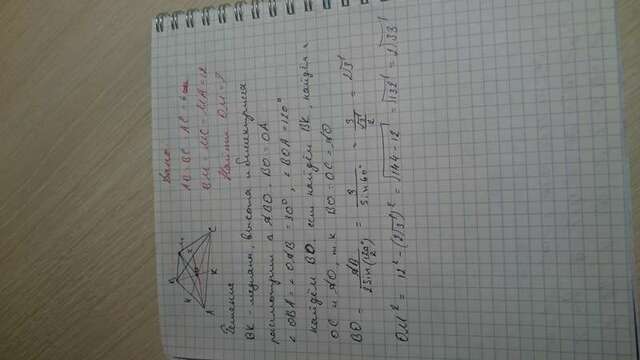 Дано:
AB = BC AC = 6 см
BM = MC = MA = 12
Найти OM = ?
Решение
BK - медиана, высота и биссектриса
рассмотрим △ ABO - BO = OA
∠OBA = ∠OAB = 30°, ∠BOA = 120°
найдём BO, если найдём BK, найдём и
OC и AO, т.к BO = OC = AO
BO = AB / 2sin(120°/2) = 3 / sin60° = 3 / (√3/2) = 2√3
OM² = 12² - (2√3)² = √144 - 12 = √132 = 2√33